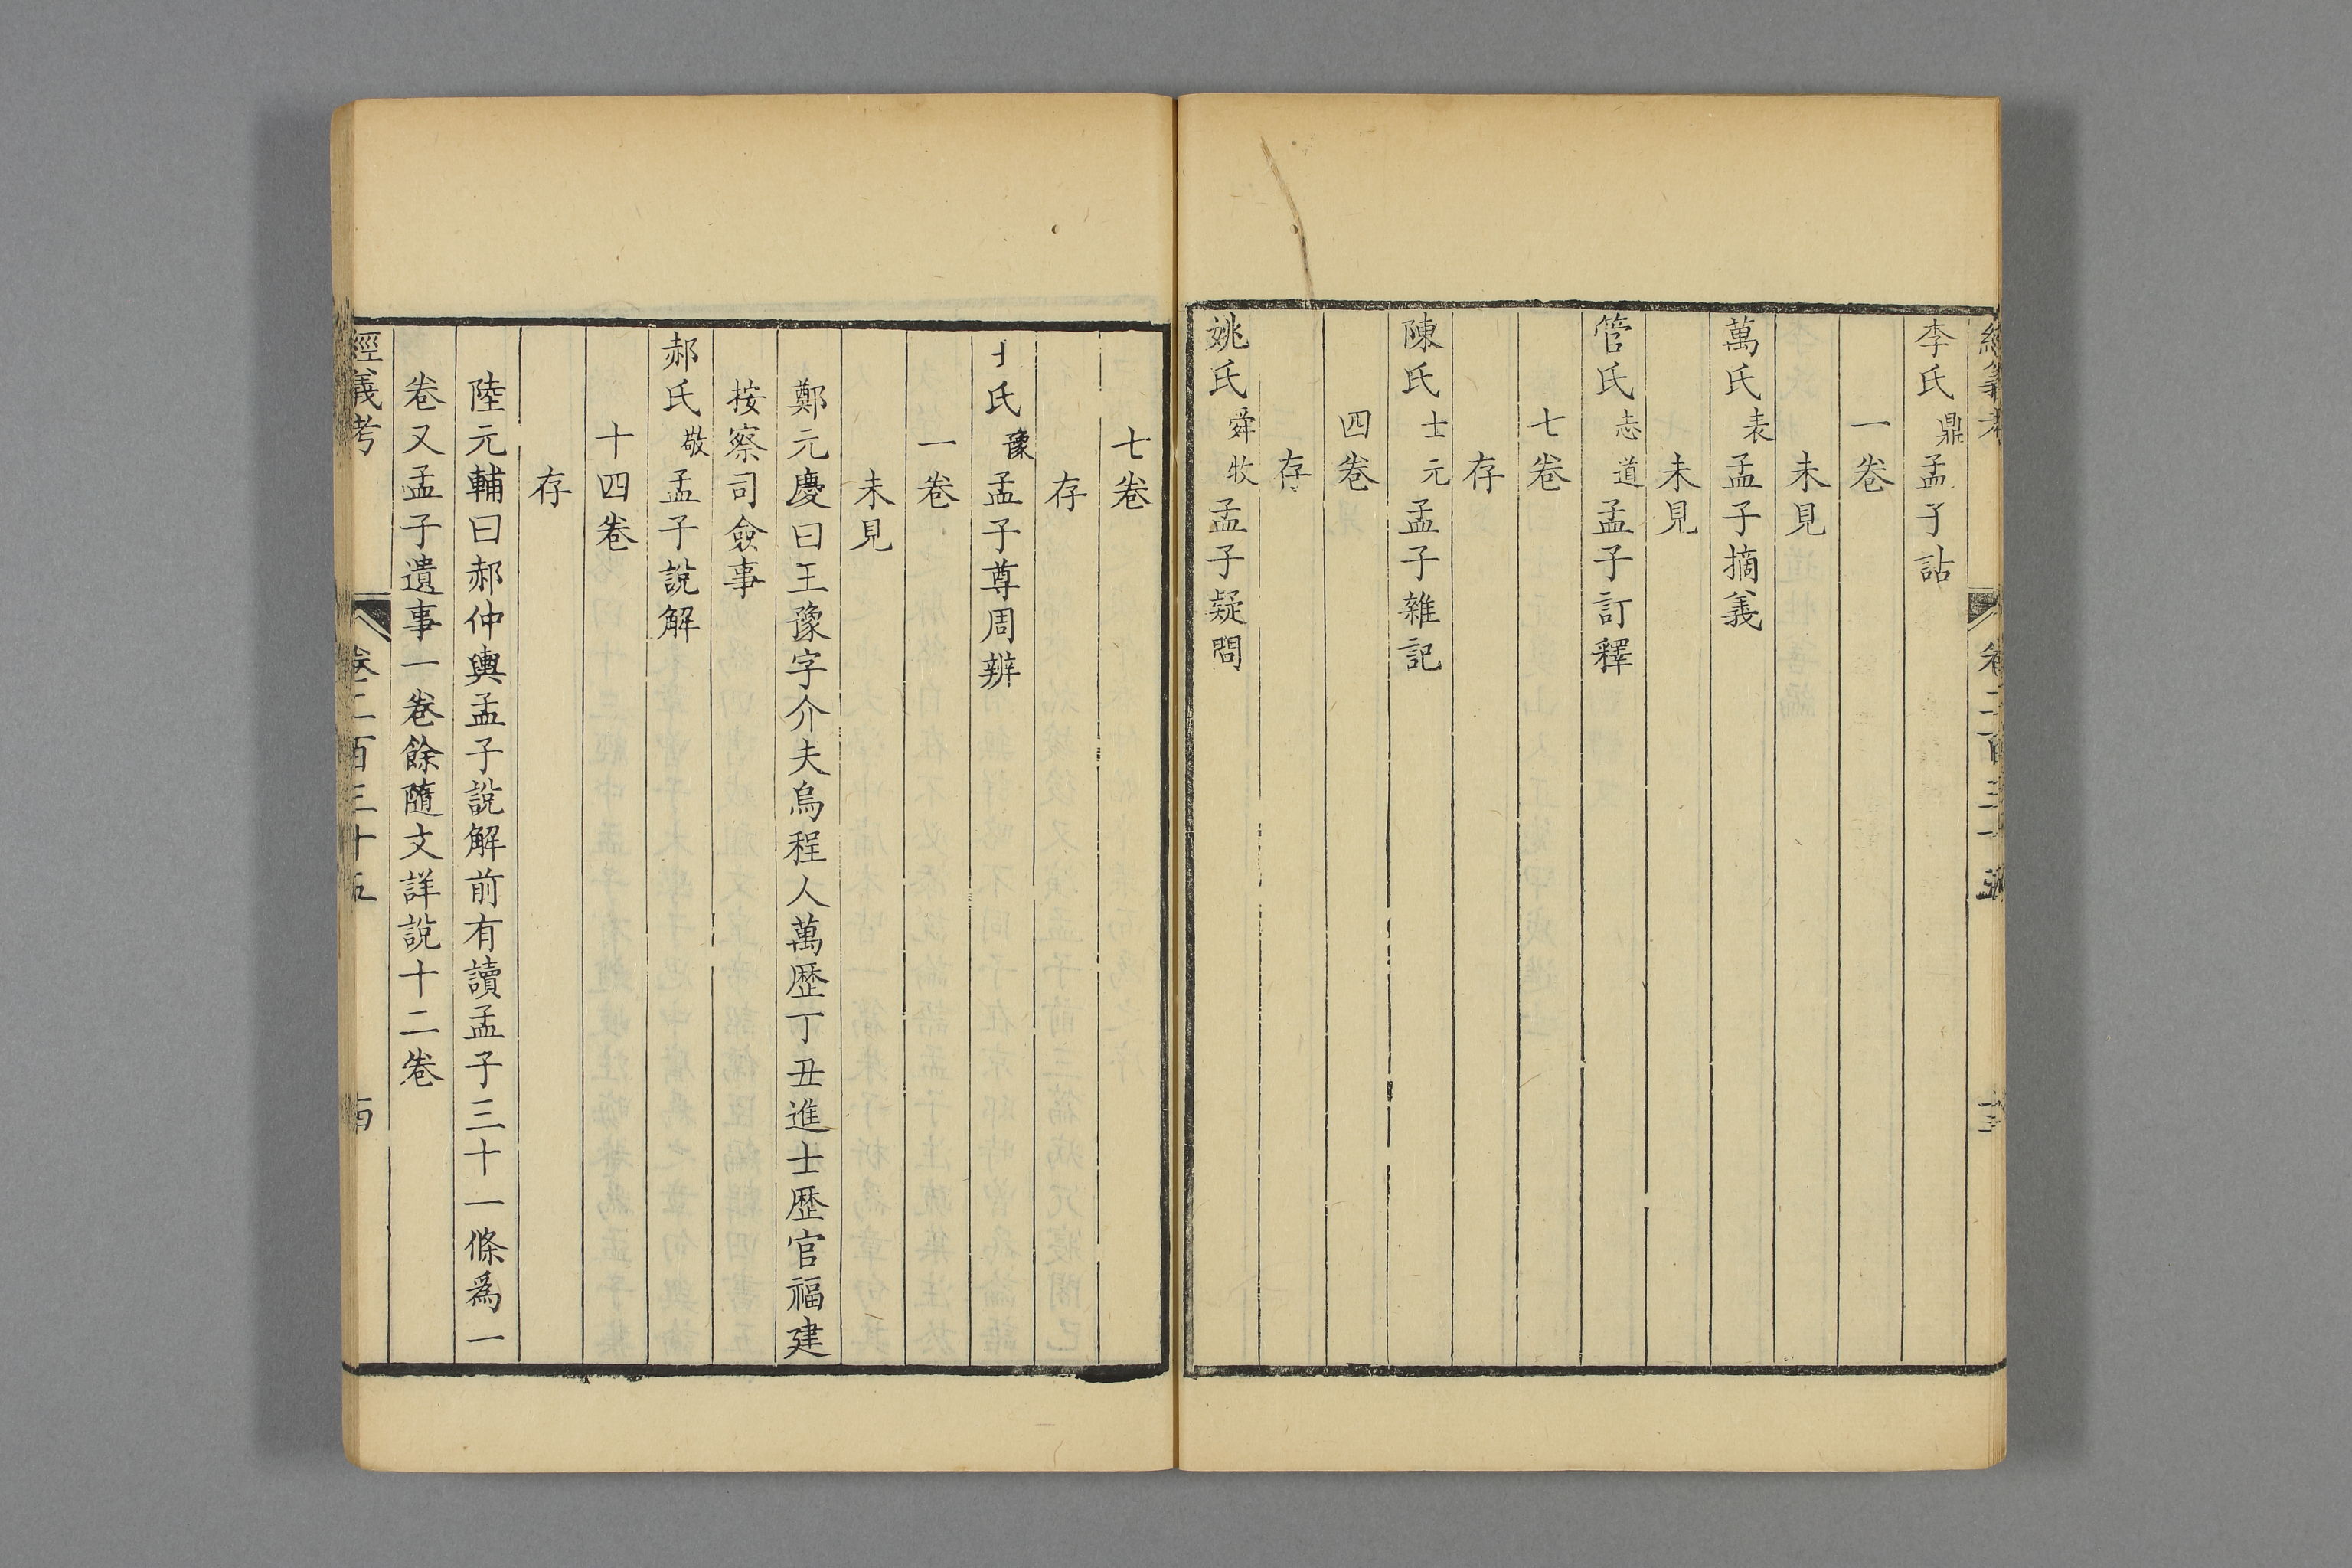 李氏鼎孟子詁
一卷
未見
萬氏表孟子摘義
未見
管氏志道孟子訂釋
七卷
存
陳氏士元孟子雜記
四卷
存
姚氏舜牧孟子疑問
七卷
存
氏豫孟子尊周辨
一卷
未見
鄭元慶曰王豫字介夫烏程人萬歷丁丑進士歷官福建
按察司僉事
郝氏敬孟子說解
十四卷
存
陸元輔曰郝仲輿孟子說解前有讀孟子三十一條爲一
卷又孟子遺事一卷餘隨文詳說十二卷
經義考 卷二百三十五